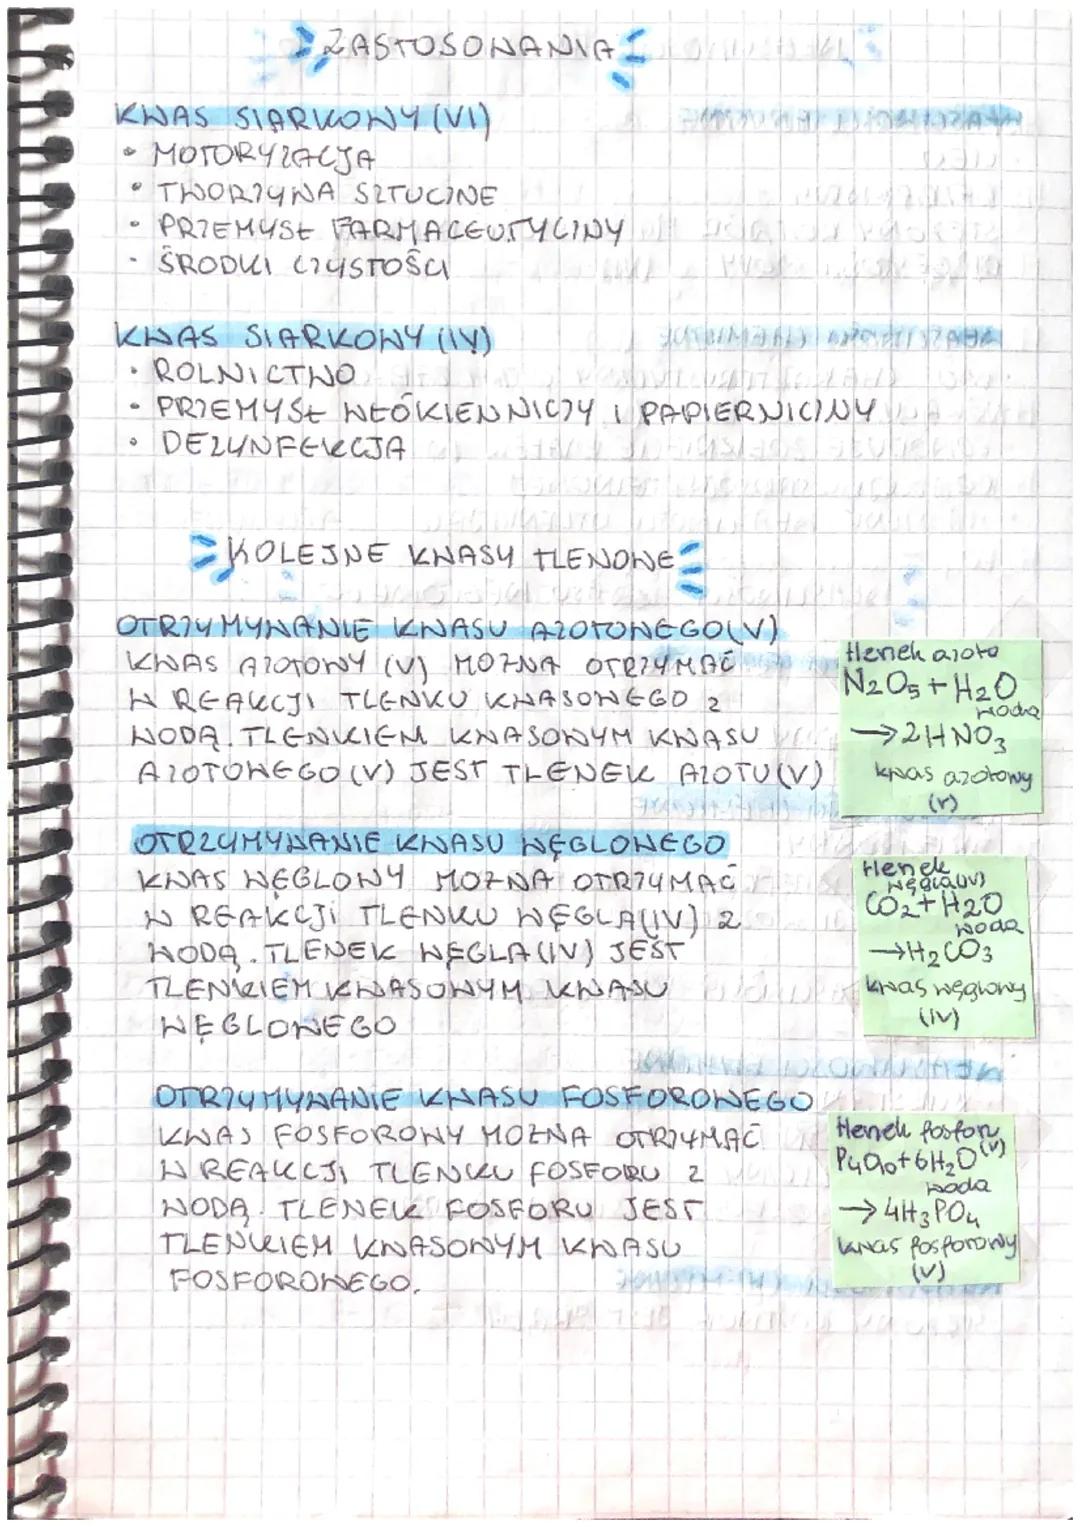 ZASTOSOWANIA
KWAS SIARKOWY (VI)
• MOTORYZACJA
• TWORZYWA SZTUCZNE
• PRZEMYSŁ FARMACEUTYCZNY
• ŚRODKI CZYSTOŚCI
KWAS SIARKOWY (IV)
• ROLNICTWO
• PRZEMYSŁ WŁÓKIENNICZY I PAPIERNICZNY
• DEZYNFEKCJA
KOLEJNE KWASY TLENOWE
OTRZYMYWANIE KWASU AZOTOWEGO(V)
KWAS AZOTOWY (V) MOŻNA OTRZYMAĆ
W REAKCJI TLENKU KWASOWEGO Z
WODĄ. TLENKIEM KWASOWYM KWASU
AZOTOWEGO (V) JEST TLENEK AZOTU(V)
tlenek azotu
N2O5 + H2O
woda
→ 2HNO3
kwas azotowy
(V)
OTRZYMYWANIE KWASU WĘGLOWEGO
KWAS WĘGLOWY MOŻNA OTRZYMAĆ
W REAKCJI TLENKU WĘGLA(IV) Z
WODĄ. TLENEK WĘGLA(IV) JEST
TLENKIEM KWASOWYM KWASU
WĘGLOWEGO
tlenek
węgla(IV)
CO2 + H2O
woda
→ H2CO3
kwas węglowy
(IV)
OTRZYMYWANIE KWASU FOSFOROWEGO
KWAS FOSFOROWY MOŻNA OTRZYMAĆ
W REAKCJI TLENKU FOSFORU Z
WODĄ. TLENEK FOSFORU JEST
TLENKIEM KWASOWYM KWASU
FOSFOROWEGO.
tlenek fosforu
(V)
P4O10 + 6H2O
woda
→ 4H3PO4
kwas fosforowy
(V)